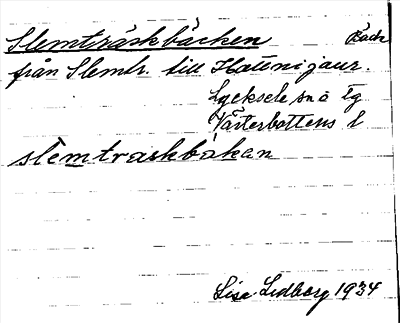 Slemträskbäcken Bäck
från Slemtr. till Hatjni jaur.
Lycksele sn å lg
Västerbottens l
slemtraskbäkan
Lisa Lidberg 1934